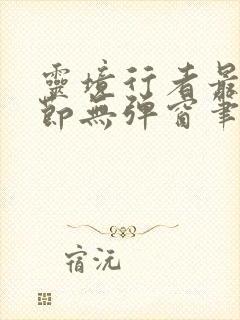 靈境行者最
節無彈窗筆
宿沅